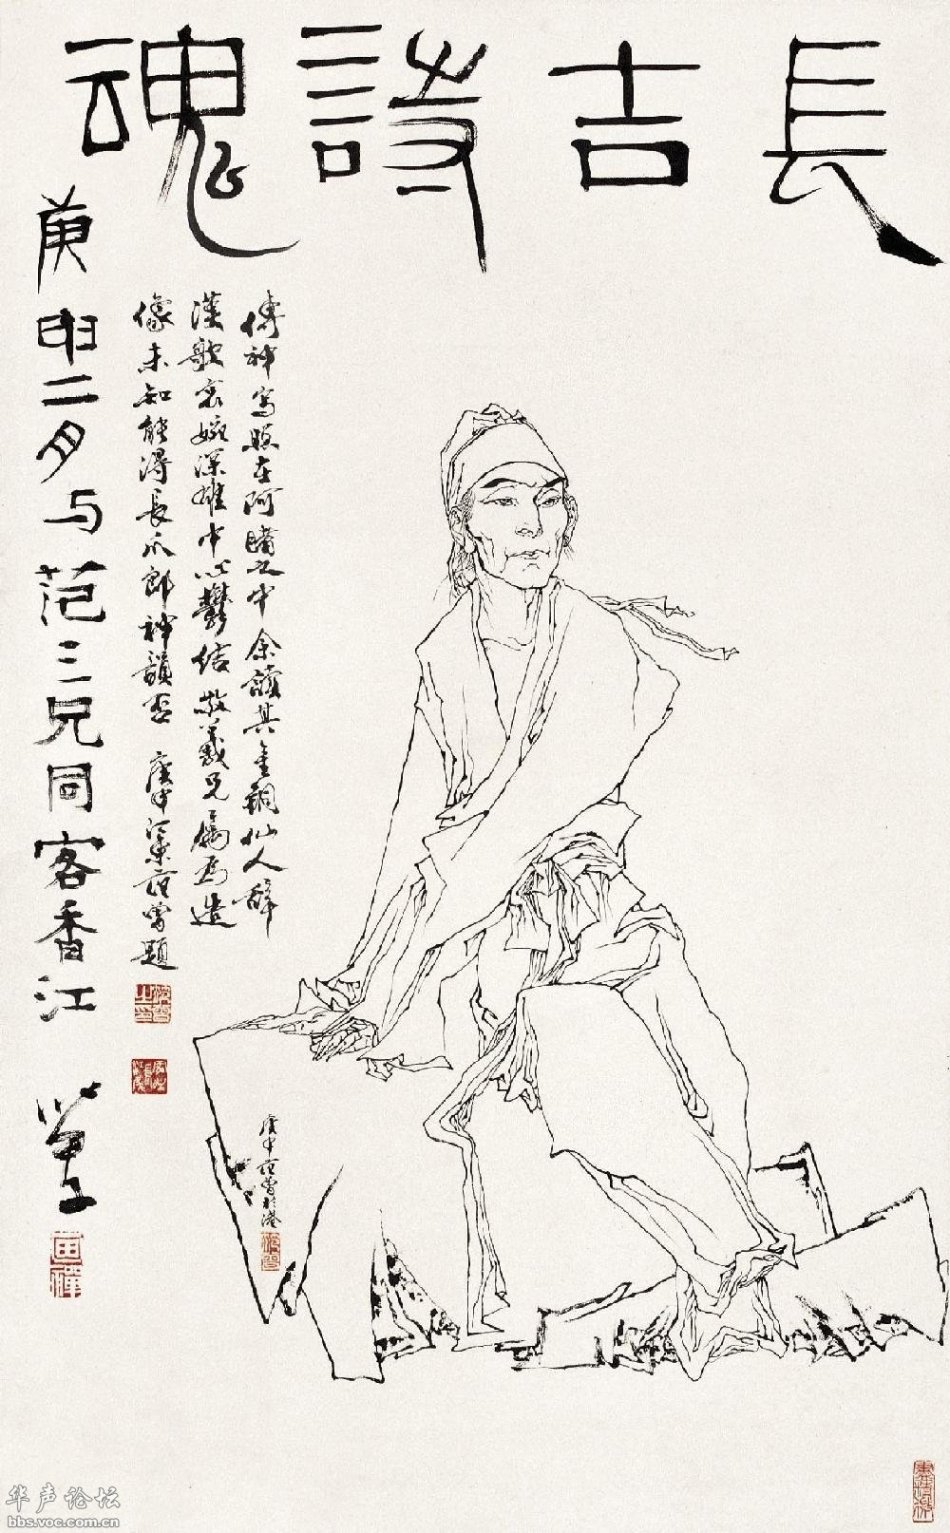 長吉詩魂
傳神寫照在阿睹之中余讀其金銅仙人辭
漢歌哀婉深雄中心鬱結敬義兄屬為造
像未知能得長爪郎神韻否 庚申江東范曾題
庚申二月与范三兄同客香江
庚申范曾於港
华声论坛
bbs.voc.com.cn